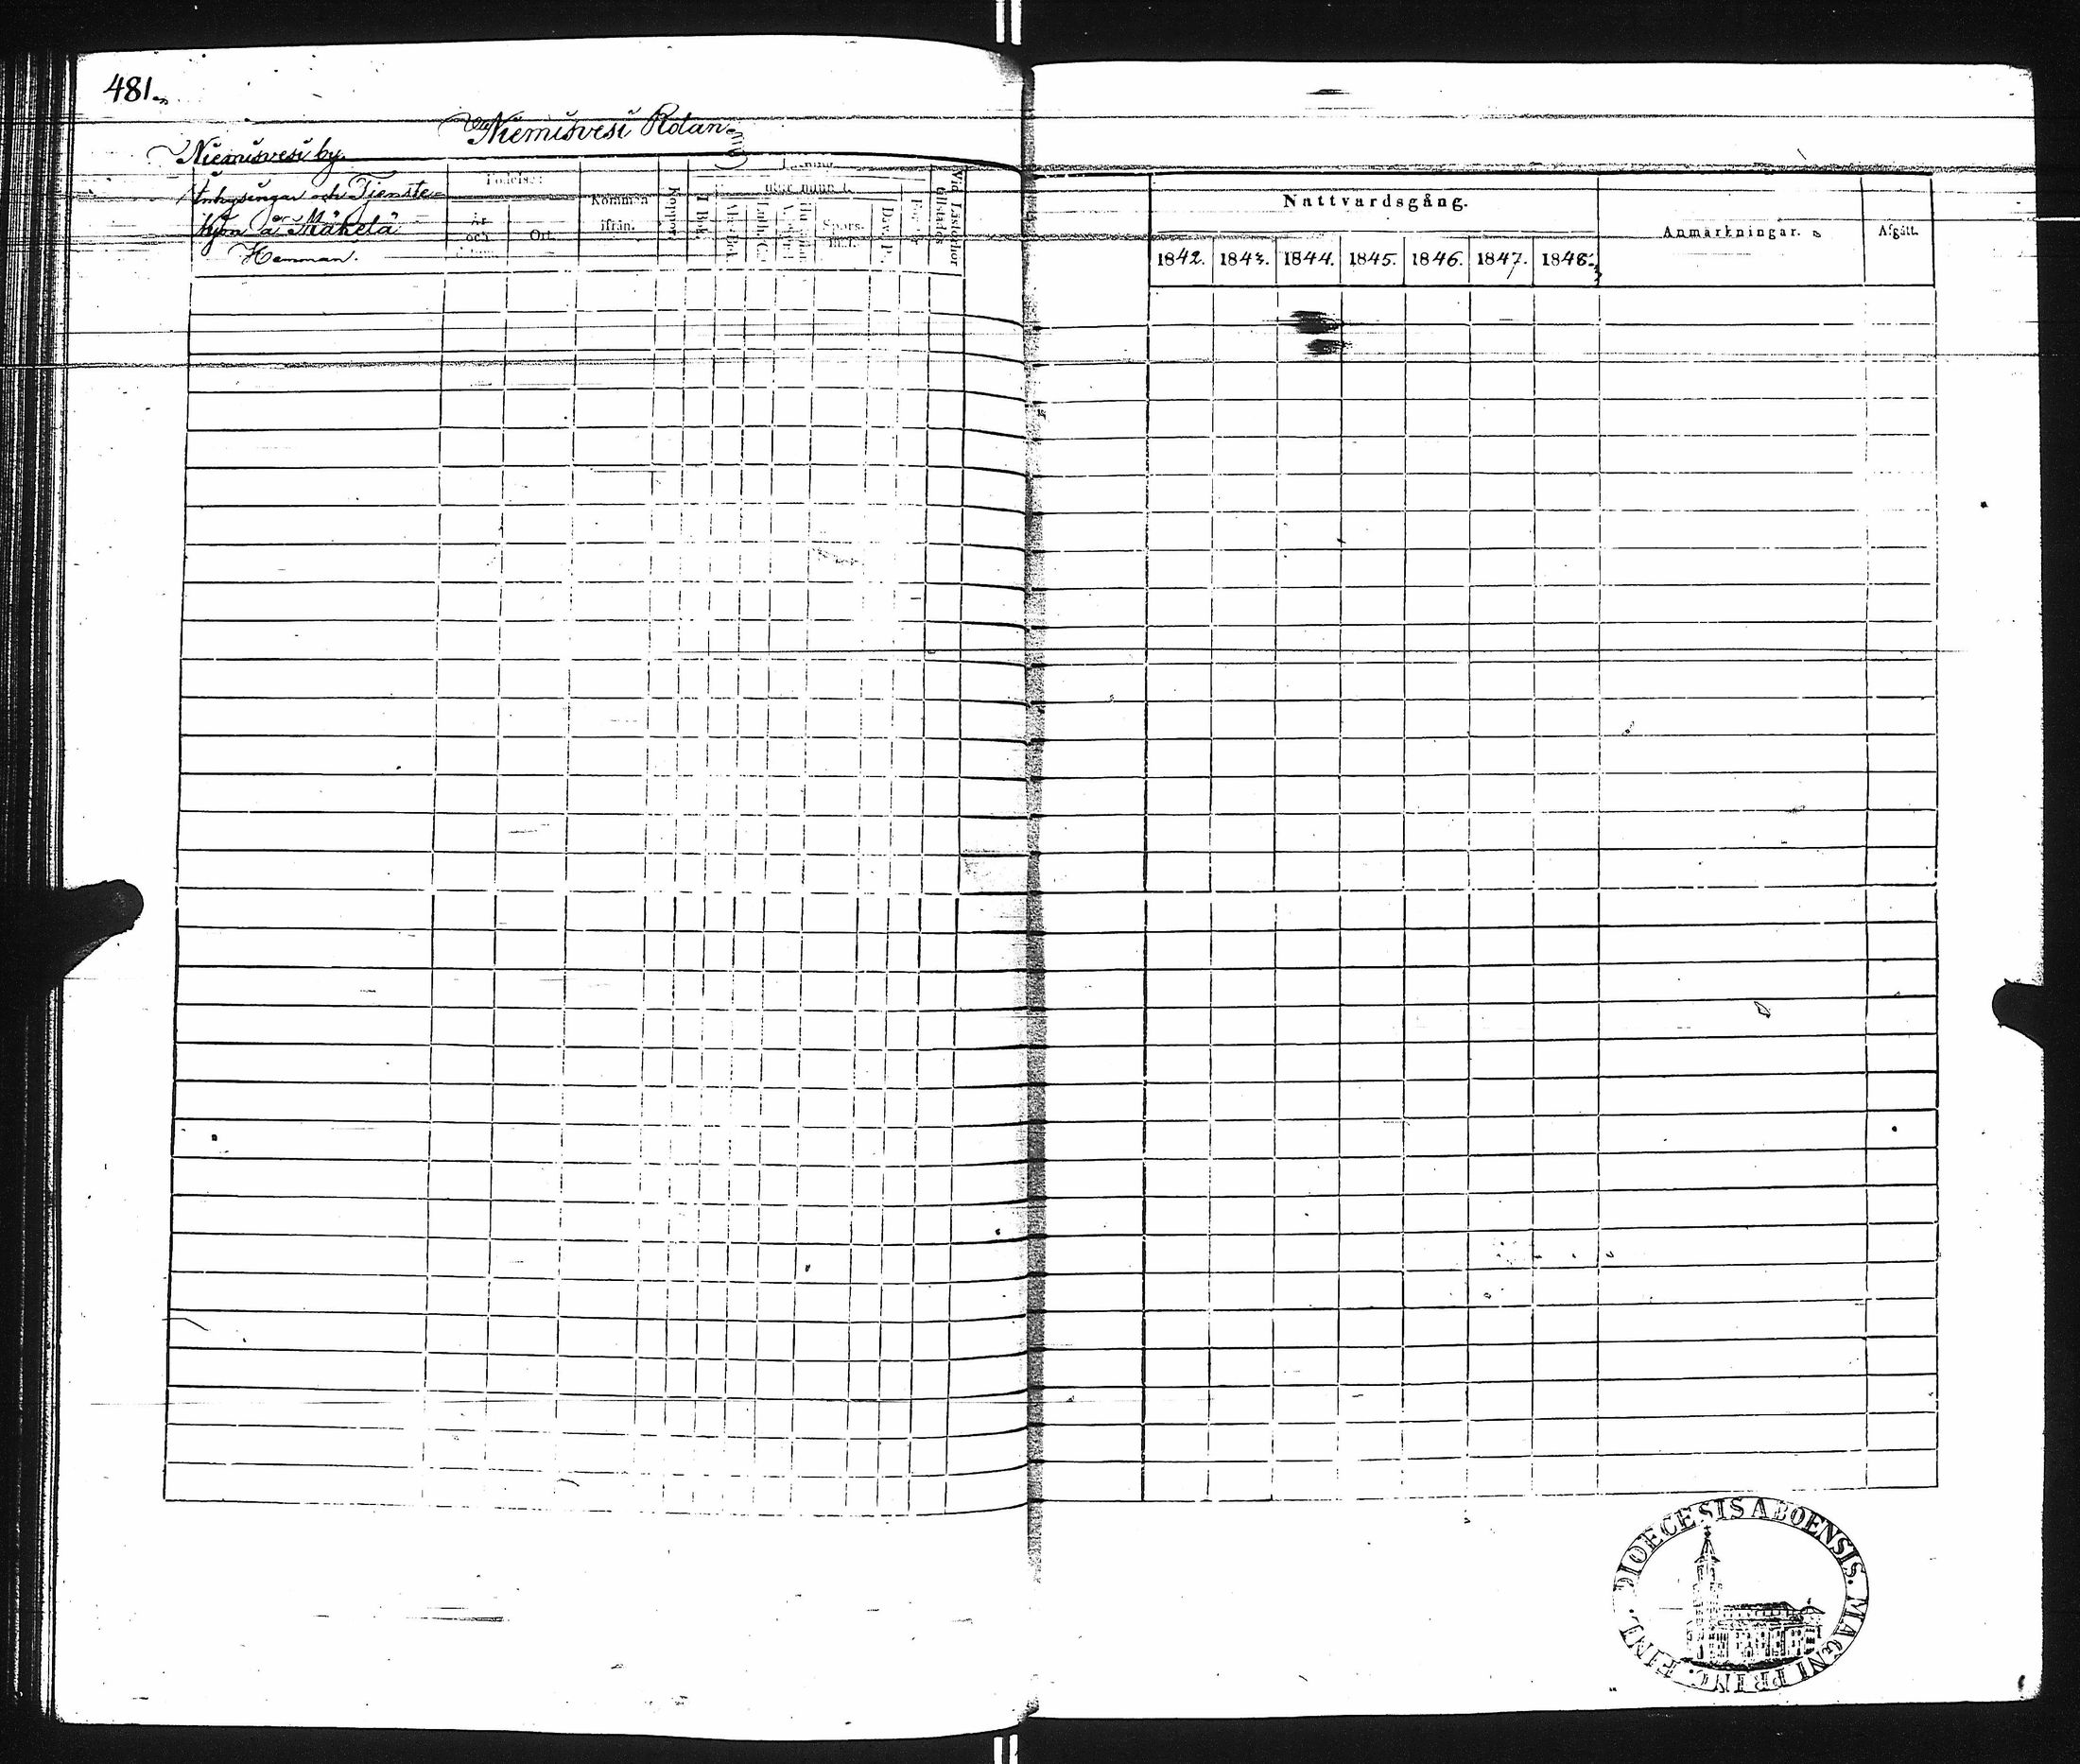 481.
Niemisvesi Rotan
Niemisvesi by.
Inhysingar och Tjenste-
hjon å Mäkelä
Hemman.
Födelse:
År
och
Ort.
Kommen
ifrån.
Koppor.
I Bok.
Läsning
utur minnet.
Abc-Bok.
Luth. C.
Spörs-
mål.
Dav. Ps.
Vid Läseförhör
tillstädes
Nattvardsgång.
1842. 1843. 1844. 1845. 1846. 1847. 1848.
Anmärkningar.
Afgått.
DIOECESIS ABOENSIS. MAGNI PRINC. FINL.